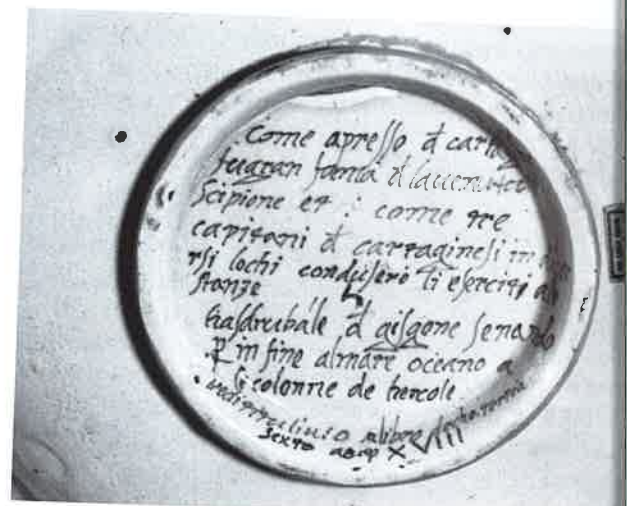 Come apresso đ
fu gran fama
Scipione et : come tre
capitani đ cartaginesi in
rsi lochi condusero li eserciti a
stanze
hasdrubale đ gisgone senando
ꝑ in fine al mare oceano a
li colonne de hercole
libro
sexto XVIII